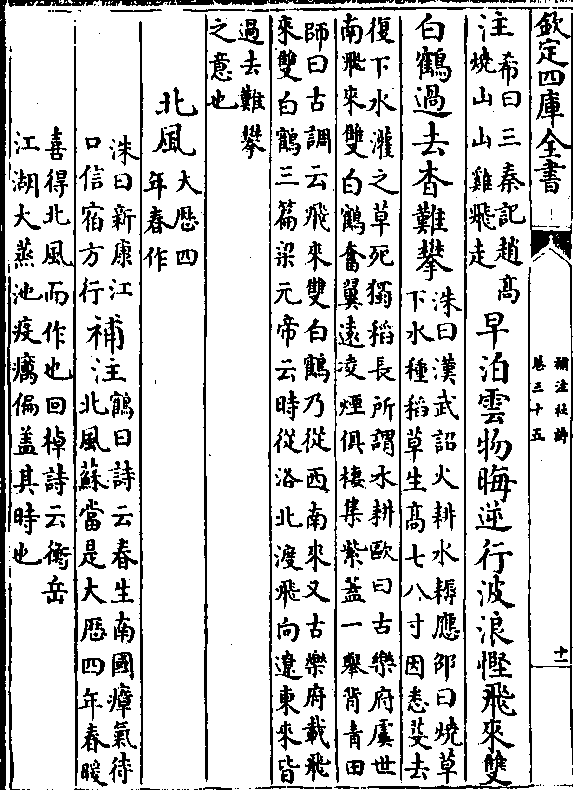 欽定四庫全書
補注杜詩
卷三十五
十一
注
希曰三秦記趙高
燒山山雞飛走
早泊雲物晦逆行波浪慳飛來雙
白鶴過去杳難攀
洙曰漢武詔火耕水耨應邵曰燒草
下水種稻草生高七八寸因悉芟去
復下水灌之草死獨稻長所謂水耕歐曰古樂府虞世
南飛來雙白鶴奮翼遠凌煙俱棲集紫蓋一舉背青田
師曰古調云飛來雙白鶴乃從西南來又古樂府載飛
來雙白鶴三篇梁元帝云時從洛北渡飛向遼東來皆
過去難攀
之意也
北風
大厯四
年春作
洙曰新康江
口信宿方行
補注
鶴曰詩云春生南國瘴氣待
北風蘇當是大厯四年春暖
喜得北風而作也回棹詩云衡岳
江湖大蒸池疫癘偏盖其時也